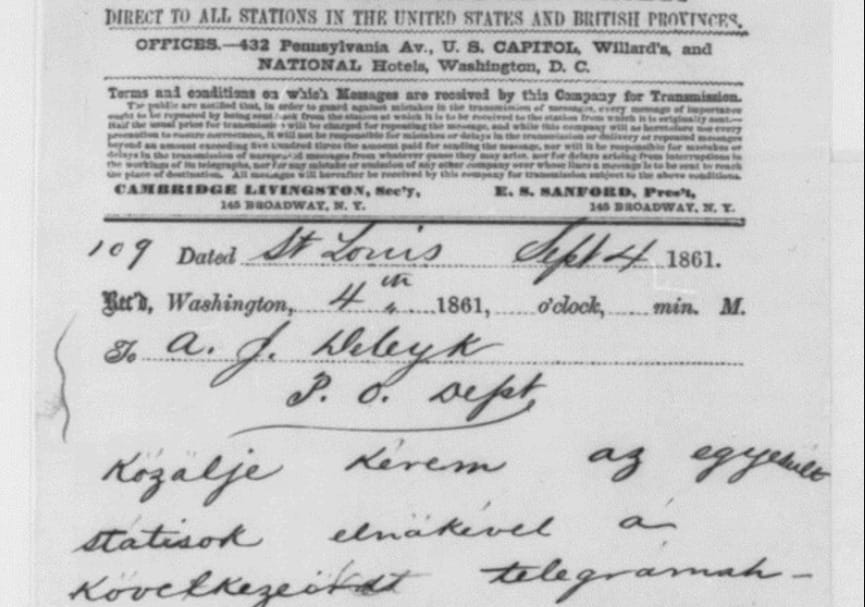 DIRECT TO ALL STATIONS IN THE UNITED STATES AND BRITISH PROVINCES.
OFFICES.—432 Pennsylvania Av., U. S. CAPITOL, Willard's, and
NATIONAL Hotels, Washington, D. C.
Terms and conditions on which Messages are received by this Company for Transmission.
The public are notified that, in order to guard against mistakes in the transmission of messages, every message of importance
ought to be repeated by being sent back from the station at which it is to be received to the station from which it is originally sent.—
Half the usual price for transmission will be charged for repeating the message, and while this company will as heretofore use every
precaution to ensure correctness, it will not be responsible for mistakes or delays in the transmission or delivery of repeated messages
beyond an amount exceeding five hundred times the amount paid for sending the message, nor will it be responsible for mistakes or
delays in the transmission of unrepeated messages from whatever cause they may arise, nor for delays arising from interruptions in
the workings of its telegraphs, nor for any mistake or omission of any other company over whose lines a message is to be sent to reach
the place of destination. All messages will hereafter be received by this company for transmission subject to the above conditions.
CAMBRIDGE LIVINGSTON, Sec'y, E. S. SANFORD, Pres't,
145 BROADWAY, N. Y. 145 BROADWAY, N. Y.
109 Dated St Louis Sept 4 1861.
Rec'd, Washington, 4th 1861, o'clock, min. M.
To A. J.
P. O. Dept
Közälje kérem az
statisok elnäkével á
telegrámah-